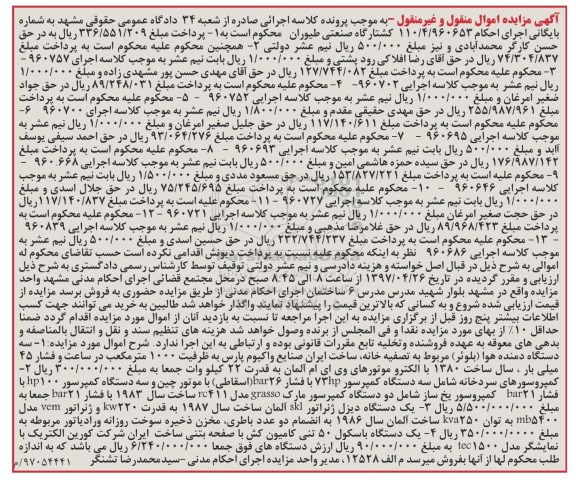 آگهی مزایده اموال منقول و غیرمنقول –به موجب پرونده کلاسه اجرائی صادره از شعبه ۳۴ دادگاه عمومی حقوقی مشهد به شماره
بایگانی اجرای احکام ۱۱۰/۴/۹۶۰۶۵۳ کشتارگاه صنعتی طیوران محکوم است به۱- پرداخت مبلغ ۳۳۶/۵۵۱/۲۰۹ ریال به در حق
حسن کارگر محمدآبادی و نیز مبلغ ۵۰۰/۰۰۰ ریال نیم عشر دولتی ۲- همچنین محکوم علیه محکوم است به پرداخت
۷۴/۳۰۴/۸۳۷ ریال در حق آقای رضا افلاکی رود پشتی و مبلغ ۱/۰۰۰/۰۰۰ ریال بابت نیم عشر به موجب کلاسه اجرایی ۹۶۰۷۵۷ -
۳- محکوم علیه محکوم است به پرداخت ۱۲۷/۷۴۴/۰۸۲ ریال در حق آقای مهدی حسن پور مشهدی زاده و مبلغ ۱/۰۰۰/۰۰۰
ریال نیم عشر به موجب کلاسه اجرایی ۹۶۰۷۰۲- ۴- محکوم علیه محکوم است به پرداخت مبلغ ۸۹/۲۴۸/۰۳۱ ریال در حق جواد
صغیر امرغان و مبلغ ۱/۰۰۰/۰۰۰ ریال نیم عشر به موجب کلاسه اجرایی ۹۶۰۷۵۲ - ۵- محکوم علیه محکوم است به پرداخت
مبلغ ۲۵۵/۹۸۷/۹۶۱ ریال در حق مهدی حقیقی مقدم و مبلغ ۱/۸۰۰/۰۰۰ ریال و نیم عشر به موجب کلاسه اجرای ۹۶۰۷۰۰ ۶-
محکوم علیه محکوم است به پرداخت مبلغ ۱۱۷/۱۴۰/۶۱۱ ریال در حق جلیل صغیر امرغان و مبلغ ۱/۰۰۰/۰۰۰ ریال نیم عشر به
موجب کلاسه اجرایی ۹۶۰۶۹۵ - ۷- محکوم علیه محکوم است به پرداخت مبلغ ۹۳/۰۶۴/۲۷۶ ریال در حق احمد سیفی یوسف
اباد و مبلغ ۵۰۰/۰۰۰ ریال بابت نیم عشر به موجب کلاسه اجرایی ۹۶۰۶۹۳ - ۸- محکوم علیه محکوم است به پرداخت مبلغ
۱۷۶/۹۸۷/۱۴۲ ریال در حق سیده حمزه هاشمی امین و مبلغ ۵۰۰/۰۰۰ ریال بابت نیم عشر به موجب کلاسه اجرایی ۹۶۰.۶۶۸ -
۹- محکوم علیه محکوم است به پرداخت مبلغ ۱۵۳/۸۲۷/۲۲۱ ریال در حق مسعود مددی و مبلغ ۱/۵۰۰/۰۰۰ ریال بابت نیم عشر به موجب
کلاسه اجرایی ۹۶۰۶۴۶ - ۱۰- محکوم علیه محکوم است به پرداخت مبلغ ۷۵/۲۴۵/۶۹۵ ریال در حق جلال اسدی و مبلغ
۱/۰۰۰/۰۰۰ ریال بابت نیم عشر به موجب کلاسه اجرایی ۹۶۰۷۲۷ – ۱۱- محکوم علیه محکوم است به پرداخت مبلغ ۱۱۷/۱۴۰/۸۳۷ ریال
در حق حجت صغیر امرغان مبلغ ۱/۰۰۰/۰۰۰ ریال نیم عشر به موجب کلاسه اجرایی ۹۶۰۷۲۱ - ۱۲- محکوم علیه محکوم است به
پرداخت مبلغ ۸۹/۹۶۸/۴۲۳ ریال در حق غلامرضا مذهبی و مبلغ ۱/۰۰۰/۰۰۰ ریال نیم عشر به موجب کلاسه اجرایی ۹۶۰۸۳۹
- ۱۳- محکوم علیه محکوم است به پرداخت مبلغ ۲۳۲/۷۴۴/۲۳۷ ریال در حق حسین اسدی و مبلغ ۵۰۰/۰۰۰ ریال نیم عشر به
موجب کلاسه اجرایی ۹۶۰۶۸۶ نظر به اینکه محکوم علیه نسبت به پرداخت دیونش اقدامی نکرده است حسب تقاضای محکوم له
اموالی به شرح ذیل در قبال اصل خواسته و هزینه دادرسی و نیم عشر دولتی توقیف توسط کارشناس رسمی دادگستری به شرح ذیل
ارزیابی و مقرر گردیده در تاریخ ۱۳۹۷/۰۴/۲۶ از ساعت ۸ الی ۸.۴۵ صبح درمحل مجتمع قضائی اجرای احکام مدنی مشهد واحد
مزایده واقع در مشهد بلوار شهید مدرس مدرس ۶ ساختمان اجرای احکام مدنی از طریق مزایده حضوری به فروش برسد مزایده از
قیمت ارزیابی شده شروع و به کسانی که بالاترین قیمت را پیشنهاد نمایند واگذار خواهد شد طالبین به خرید می توانند جهت کسب
اطلاعات بیشتر پنج روز قبل از برگزاری مزایده به این اجرا مراجعه تا نسبت به بازدید آنان از اموال مورد مزایده اقدام گردد ضمنا
حداقل ۱۰٪ از بهای مورد مزایده نقدا و فی المجلس از برنده وصول خواهد شد هزینه های تنظیم سند و نقل و انتقال بالمناصفه و
بدهی های معوقه به عهده فروشنده وتخلیه تابع مقررات قانونی بوده و ارتباطی به این اجرا ندارد. شرح اموال مورد مزایده:۱- سه
دستگاه دمنده هوا (بلوئر) مربوط به تصفیه خانه، ساخت ایران صنایع واکیوم پارس به ظرفیت ۱۰۰۰ مترمکعب در ساعت و فشار ۴۵
میلی بار ، سال ساخت ۱۳۸۰ با الکترو موتورهای وی ای ام آلمان به قدرت ۲۲ کیلو وات جمعا به مبلغ ۳۰۰/۰۰۰/۰۰۰ ریال ۲-
کمپروسورهای سردخانه شامل سه دستگاه کمپرسور ۷۳hp با فشار bar۲۶(اسقاطی) با موتور چین و سه دستگاه کمپرسور hp۱۰۰ با
فشار bar۲۱ کمپروسور یخ ساز شامل دو دستگاه کمپرسور مارک grasso مدل rc۴۱۱ ساخت سال ۱۹۸۳ با فشار bar۲۱ جمعا به
مبلغ ۵/۵۰۰/۰۰۰/۰۰۰ ریال ۳- یک دستگاه دیزل ژنراتور skl آلمان ساخت سال ۱۹۸۷ به قدرت kw۲۲۰ و ژنراتور vem مدل
mb۵۴۰۰ به توان kva۲۵۰ ساخت آلمان سال ۱۹۸۶ به انضمام دو عدد باطری، مخزن ذخیره سوخت روزانه ورادیاتور مربوطه به
مبلغ ۳۵۰/۰۰۰/۰۰۰ ریال ۴- یک دستگاه باسکول ۵۰ تنی کامیون کش با صفحه بتنی ساخت ایران شرکت کورین الکتریک با
نمایشگر مدل tec۱۵۰۰ به مبلغ ۹۰/۰۰۰/۰۰۰ ریال ارزش دستگاه های فوق جمعا ۶/۲۴۰/۰۰۰/۰۰۰ ریال می باشد که به اندازه
طلب محکوم لها از آنها بفروش میرسد م الف ۱۲۵۲۸. مدیر واحد مزایده اجرای احکام مدنی –سیدمحمدرضا تشنگر
۹۷۰۵۴۴۴۱/م